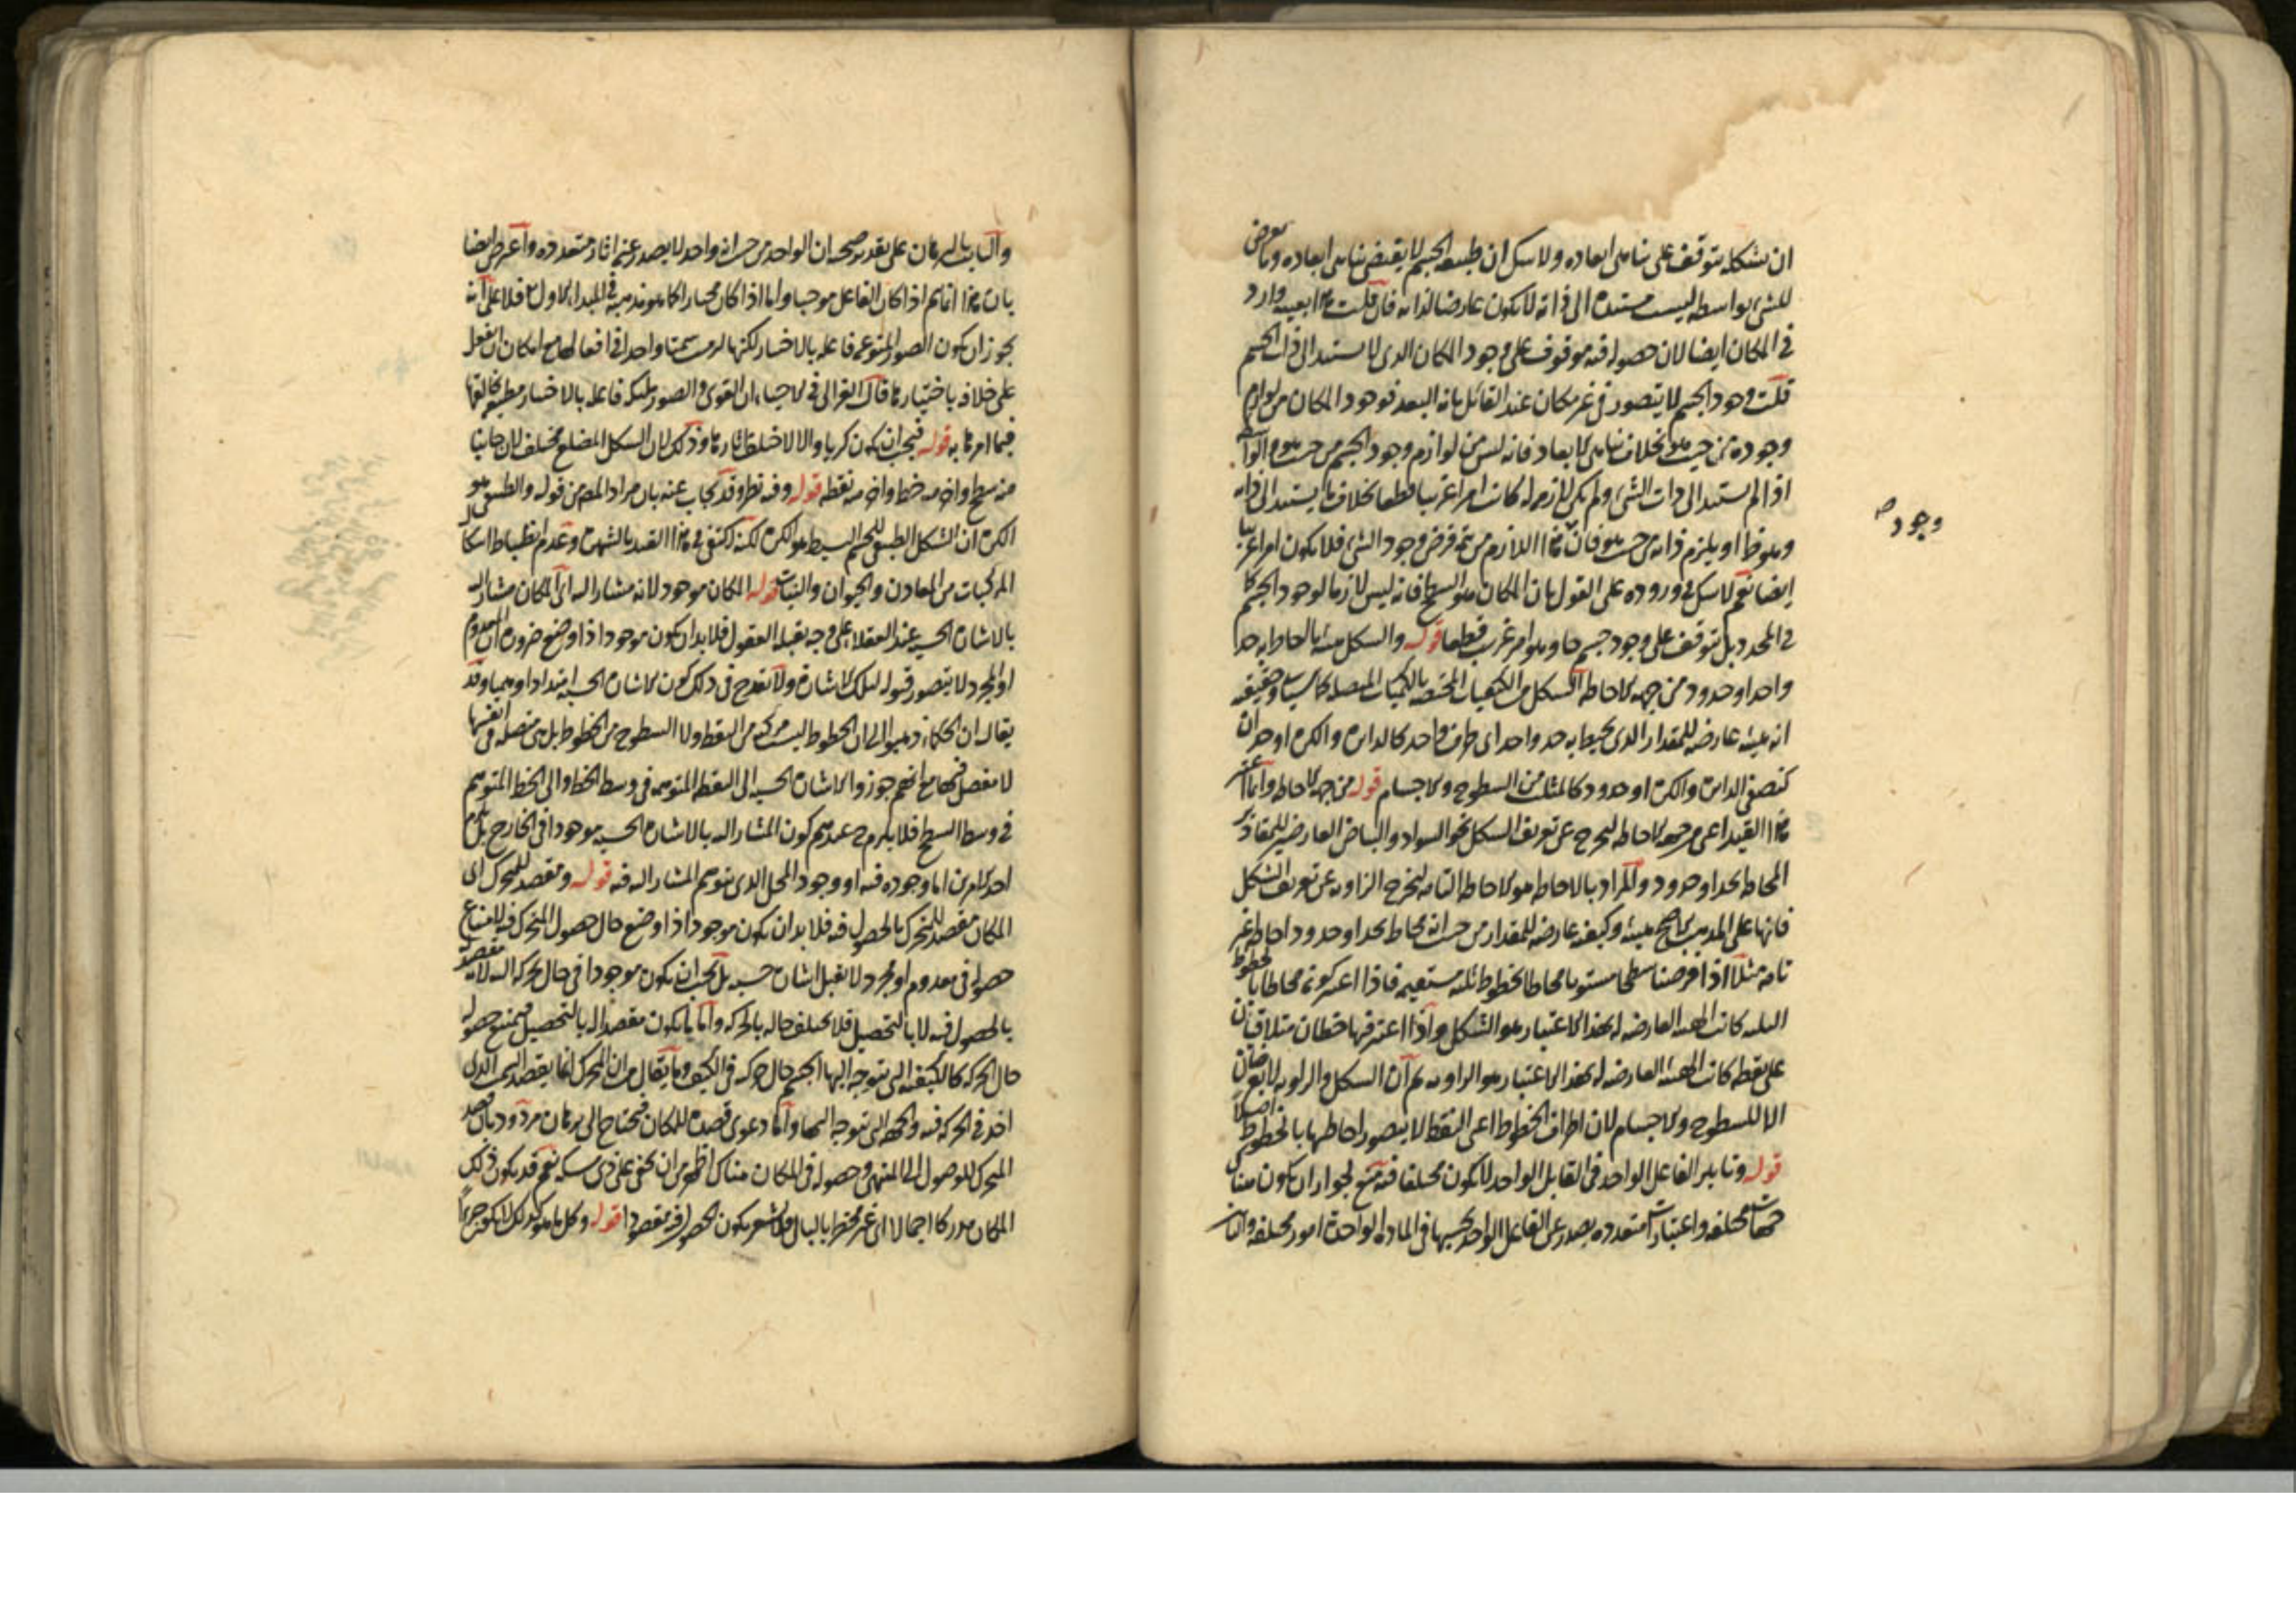 ان تشكله يتوقف على تناهى ابعاده ولا شك ان طبيعة الجسم لا يقتضى تناهى ابعاده وما يعرض
للشئ بواسطه ليست مستنده الى ذاته لا يكون عارضا لذاته فان قلت هذا بعينه وارد
فى المكان ايضا لان حصوله فيه موقوف على وجود المكان الذى لا يستند الى ذات الجسم
قلت وجود الجسم لا يتصور فى غير مكان عند القائل بانه البعد فوجود المكان من لوازم
وجوده من حيث هو بخلاف تناهى الابعاد فانه ليس من لوازم وجود الجسم من حيث هو
اذا لم يستند الى ذات الشئ ولم يكن لازما له كانت امرا غريبا قطعا بخلاف ما يستند الى ذاته
وهو ظ او يلزم ذاته من حيث هو فان هذا اللازم من تتمة فرض وجود الشئ فلا يكون امرا غريبا
ايضا نعم لا شك فى وروده على القول بان المكان هو السطح فانه ليس لازما لوجود الجسم كما
فى المحدد بل يتوقف على وجود جسم حاو وهو امر غريب قطعا قوله والشكل هيئة احاطة حد
واحد او حدود من جهة الاحاطه الشكل من الكيفيات المختصه بالكميات المتصله كما سياتى وحقيقته
انه هيئة عارضه للمقدار الذى يحيط به حد واحد اى طرف واحد كالدايره والكره او حدان
كنصفى الدايره والكره او حدود كالمثلث من السطوح والاجسام قوله من جهة الاحاطه وانما اعتبر
هذا القيد اعنى من جهة الاحاطه ليخرج عن تعريف الشكل نحو السواد والبياض العارضين للمقادير
المحاطه بحد او حدود والمراد بالاحاطه هو الاحاطه التامه ليخرج الزاويه عن تعريف الشكل
فانها على المذهب الاصح هيئة وكيفيه عارضه للمقدار من حيث انه محاط بحد او حدود احاطة غير
تامه مثلا اذا فرضنا سطحا مستويا محاطا بخطوط ثلثه مستقيمه فاذا اعتبر كونه محاطا بالخطوط
الثلثه كانت الهيئه العارضه له بهذا الاعتبار هو الشكل واذا اعتبر فيها خطان متلاقيان
على نقطه كانت الهيئه العارضه له بهذا الاعتبار هو الزاويه ثم ان الشكل والزاويه لا يعرضان
الا للسطوح والاجسام لان اطراف الخطوط اعنى النقط لا يتصور احاطتها بالخطوط اصلا
قوله وتاثير الفاعل الواحد فى القابل الواحد لا يكون مختلفا فيه منع لجواز ان يكون هناك
جهات مختلفه واعتبارات متعدده يصدر عن الفاعل الواحد بحسبها فى الماده الواحدة امور مختلفه
وجود صح
والثابت بالبرهان على تقدير صحته ان الواحد من حيث انه واحد لا يصدر عنه اثار متعدده واعترض ايضا
بان هذا انما يتم اذا كان الفاعل موجبا واما اذا كان مختارا كما هو مذهبه فى المبدا الاول فلا على انه
يجوز ان يكون الصور المتنوعه فاعله بالاختيار لكنها لزمت سمتا واحدا فى افعالها مع امكان ان يفعل
على خلافه باختيارها قال الغزالى فى الاحياء ان القوى والصور ملئكه فاعله بالاختيار مطيعة لخالقها
فيما امرها به قوله فيجب ان يكون كريا والا لاختلفت اثارها وذلك لان الشكل المضلع مختلف لان جانبا
منه سطح واخر منه خط واخر منه نقطه قوله وفيه نظر وقد يجاب عنه بان مراد المص من قوله والطبيعى هو
الكره ان الشكل الطبيعى للجسم البسيط هو الكره لكنه اكتفى فى هذا القيد بالشهره وعدم انضباط اشكال
المركبات من المعادن والحيوان والنبات قوله المكان موجود لانه مشار اليه اى المكان مشار اليه
بالاشاره الحسيه عند العقلاء على وجه يقبله العقول فلا بد ان يكون موجودا ذا وضع ضرورة ان المعدوم
او المجرد لا يتصور قبوله لتلك الاشارة ولا يقدح فى ذلك كون الاشاره الحسيه امتدادا وهميا وقد
يقال ان الحكماء ذهبوا الى ان الخطوط ليست مركبه من النقط ولا السطوح من الخطوط بل هى متصله فى انفسها
لا مفصل فيها مع انهم جوزوا الاشاره الحسيه الى النقطه المتوهمه فى وسط الخط والى الخط المتوهم
فى وسط السطح فلا يلزم ح عندهم كون المشار اليه بالاشاره الحسيه موجودا فى الخارج بل يلزم
احد الامرين اما وجوده فيه او وجود المحل الذى يتوهم المشار اليه فيه قوله ومقصد للمتحرك اى
المكان مقصد للمتحرك بالحصول فيه فلا بد ان يكون موجودا ذا وضع حال حصول المتحرك فيه لامتناع
حصوله فى معدوم او مجرد لا يقبل اشاره حسيه بل يجب ان يكون موجودا فى حال حركته اليه لانه مقصد
بالحصول فيه لا بالتحصيل فلا يختلف حاله بالحركه واما ما يكون مقصدا له بالتحصيل فيمتنع حصوله
حال الحركه كالكيفيه التى يتوجه اليها الجسم حال حركته فى الكيف وما يقال من ان المتحرك انما يقصد السمت الذى
اخذ فى الحركه فيه والجهه التى يتوجه اليها واما دعوى قصده للمكان فيحتاج الى برهان مردود بان قصد
المتحرك للوصول الى المنتهى وحصوله فى المكان هناك اظهر من ان يخفى على ذى مسكه نعم قد يكون ذلك
المكان مدركا اجمالا اى غير مخطر بالبال فلا يشعر بكون الحصول فيه مقصودا قوله وكل ما هو كذلك لا يكون جزءا